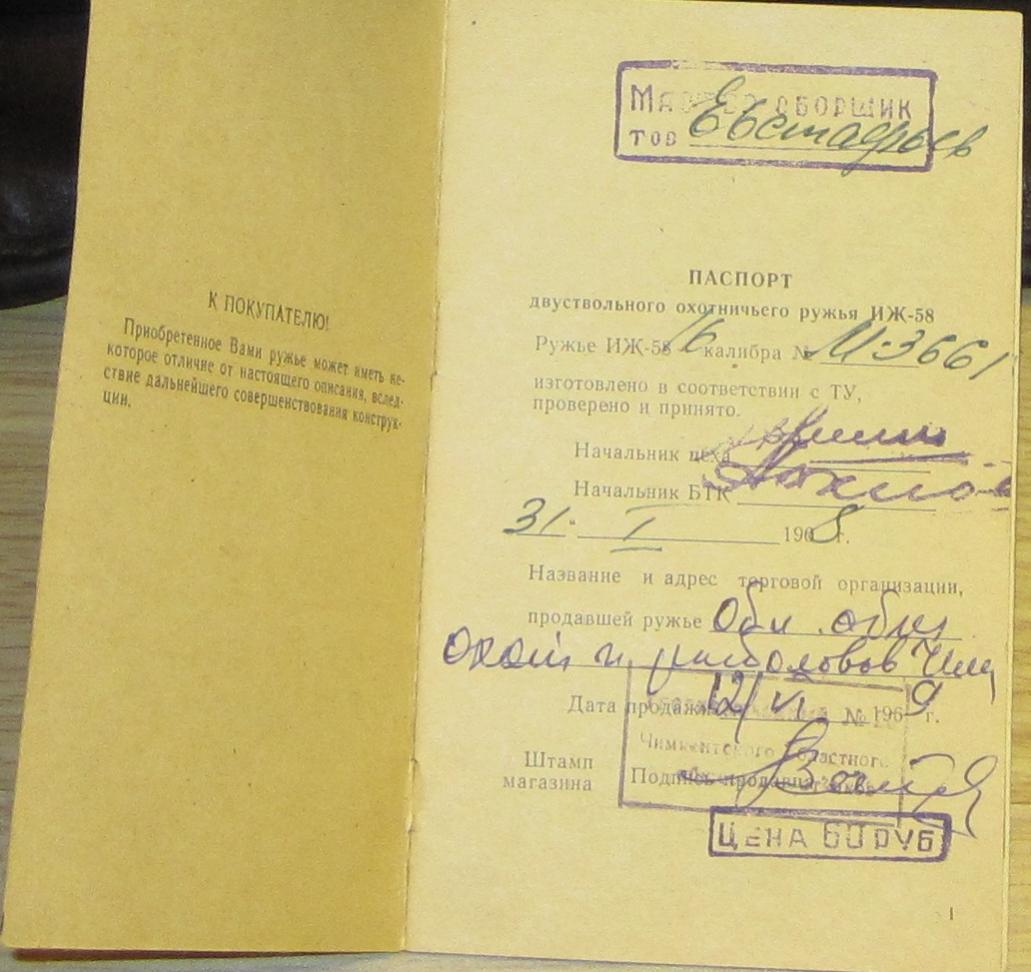 К ПОКУПАТЕЛЮ!
Приобретенное Вами ружье может иметь не-
которое отличие от настоящего описания, вслед-
ствие дальнейшего совершенствования конструк-
ции.
Мастер сборщик
тов Евстафьев
ПАСПОРТ
двуствольного охотничьего ружья ИЖ-58
Ружье ИЖ-58 16 калибра № М-3661
изготовлено в соответствии с ТУ,
проверено и принято.
Начальник цеха
Начальник БТК
31. I 1968 г.
Название и адрес торговой организации,
продавшей ружье Обл.
охот и рыболовов Чим
Дата продажи 12/VI 1969 г.
№
Чимкентского областного
Штамп
магазина
Подпись продавца
ЦЕНА 60 РУБ
1